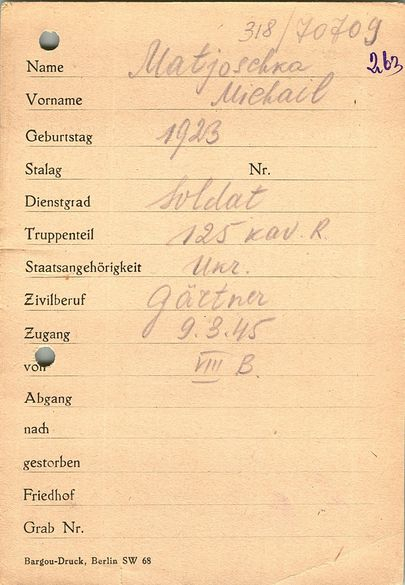 318/70709
263
Name Matjoschka
Vorname Michail
Geburtstag 1923
Stalag Nr.
Dienstgrad Soldat
Truppenteil 125 kav. R.
Staatsangehörigkeit Ukr.
Zivilberuf Gärtner
Zugang 9.3.45
von VIII B
Abgang
nach
gestorben
Friedhof
Grab Nr.
Bargou-Druck, Berlin SW 68